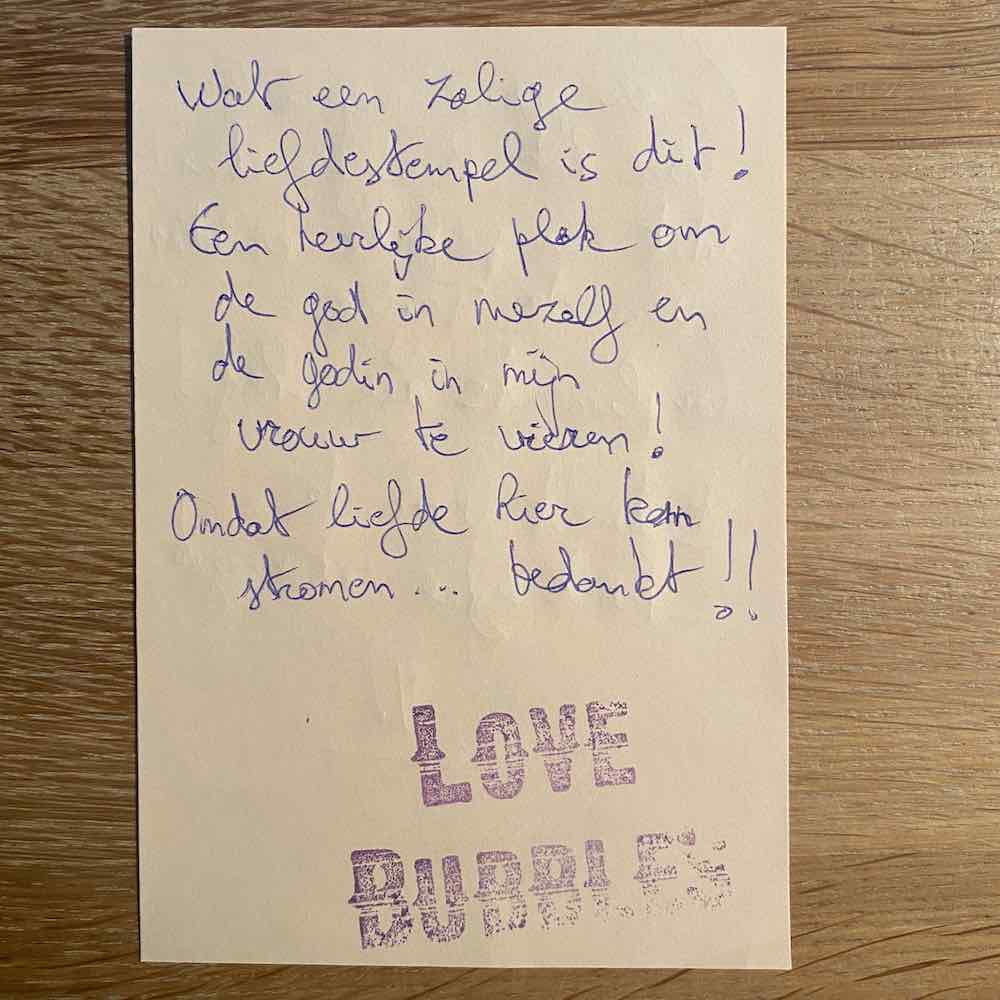 Wat een zalige
liefdestempel is dit!
Een heerlijke plek om
de god in mezelf en
de godin in mijn
vrouw te vieren!
Omdat liefde hier kan
stromen... bedankt!!
LOVE
BUBBLES